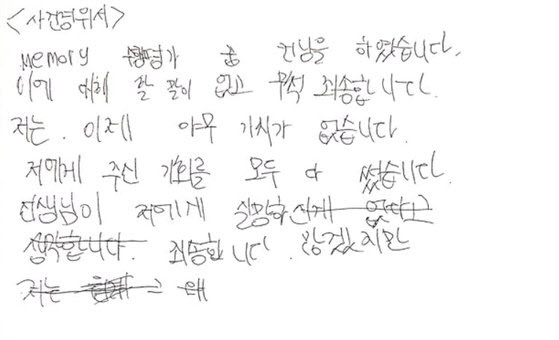 <사건경위서>
memory 수행평가 중 컨닝을 하였습니다.
이에 대해 할 말이 없고 무척 죄송합니다.
저는 이제 아무 기회가 없습니다.
저에게 주신 기회를 모두 다 썼습니다.
선생님이 저에게 실망하신게 없다고
생각합니다. 죄송합니다. 않겠지만
저는 그 왜